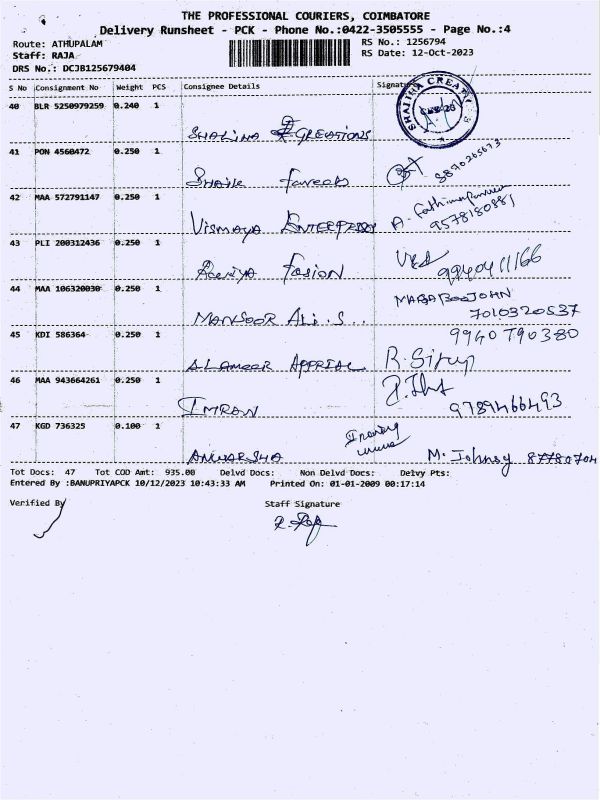 THE PROFESSIONAL COURIERS, COIMBATORE
Delivery Runsheet - PCK - Phone No.:0422-3505555 - Page No.:4
Route: ATHUPALAM
RS No.: 1256794
Staff: RAJA
RS Date: 12-Oct-2023
DRS No.: DCJB125679404
S No Consignment No Weight PCS Consignee Details Signature
40 BLR 5250979259 0.240 1
SHALINA CREATIONS
41 PON 4560472 0.250 1
8870265673
42 MAA 572791147 0.250 1
VISMAYA ENTERPRISES A. Fathima
9578180881
43 PLI 200312436 0.250 1
FASION
9940411166
44 MAA 106320030 0.250 1
MANSOOR ALI.S..
7010320537
45 KDI 586364 0.250 1
9940790380
ALAMEER
46 MAA 943664261 0.250 1
IMRAN
9789466493
47 KGD 736325 0.100 1
ANWARSHA M. Johnsy 87780704
Tot Docs: 47 Tot COD Amt: 935.00 Delvd Docs: Non Delvd Docs: Delvy Pts:
Entered By :BANUPRIYAPCK 10/12/2023 10:43:33 AM Printed On: 01-01-2009 00:17:14
Verified By Staff Signature